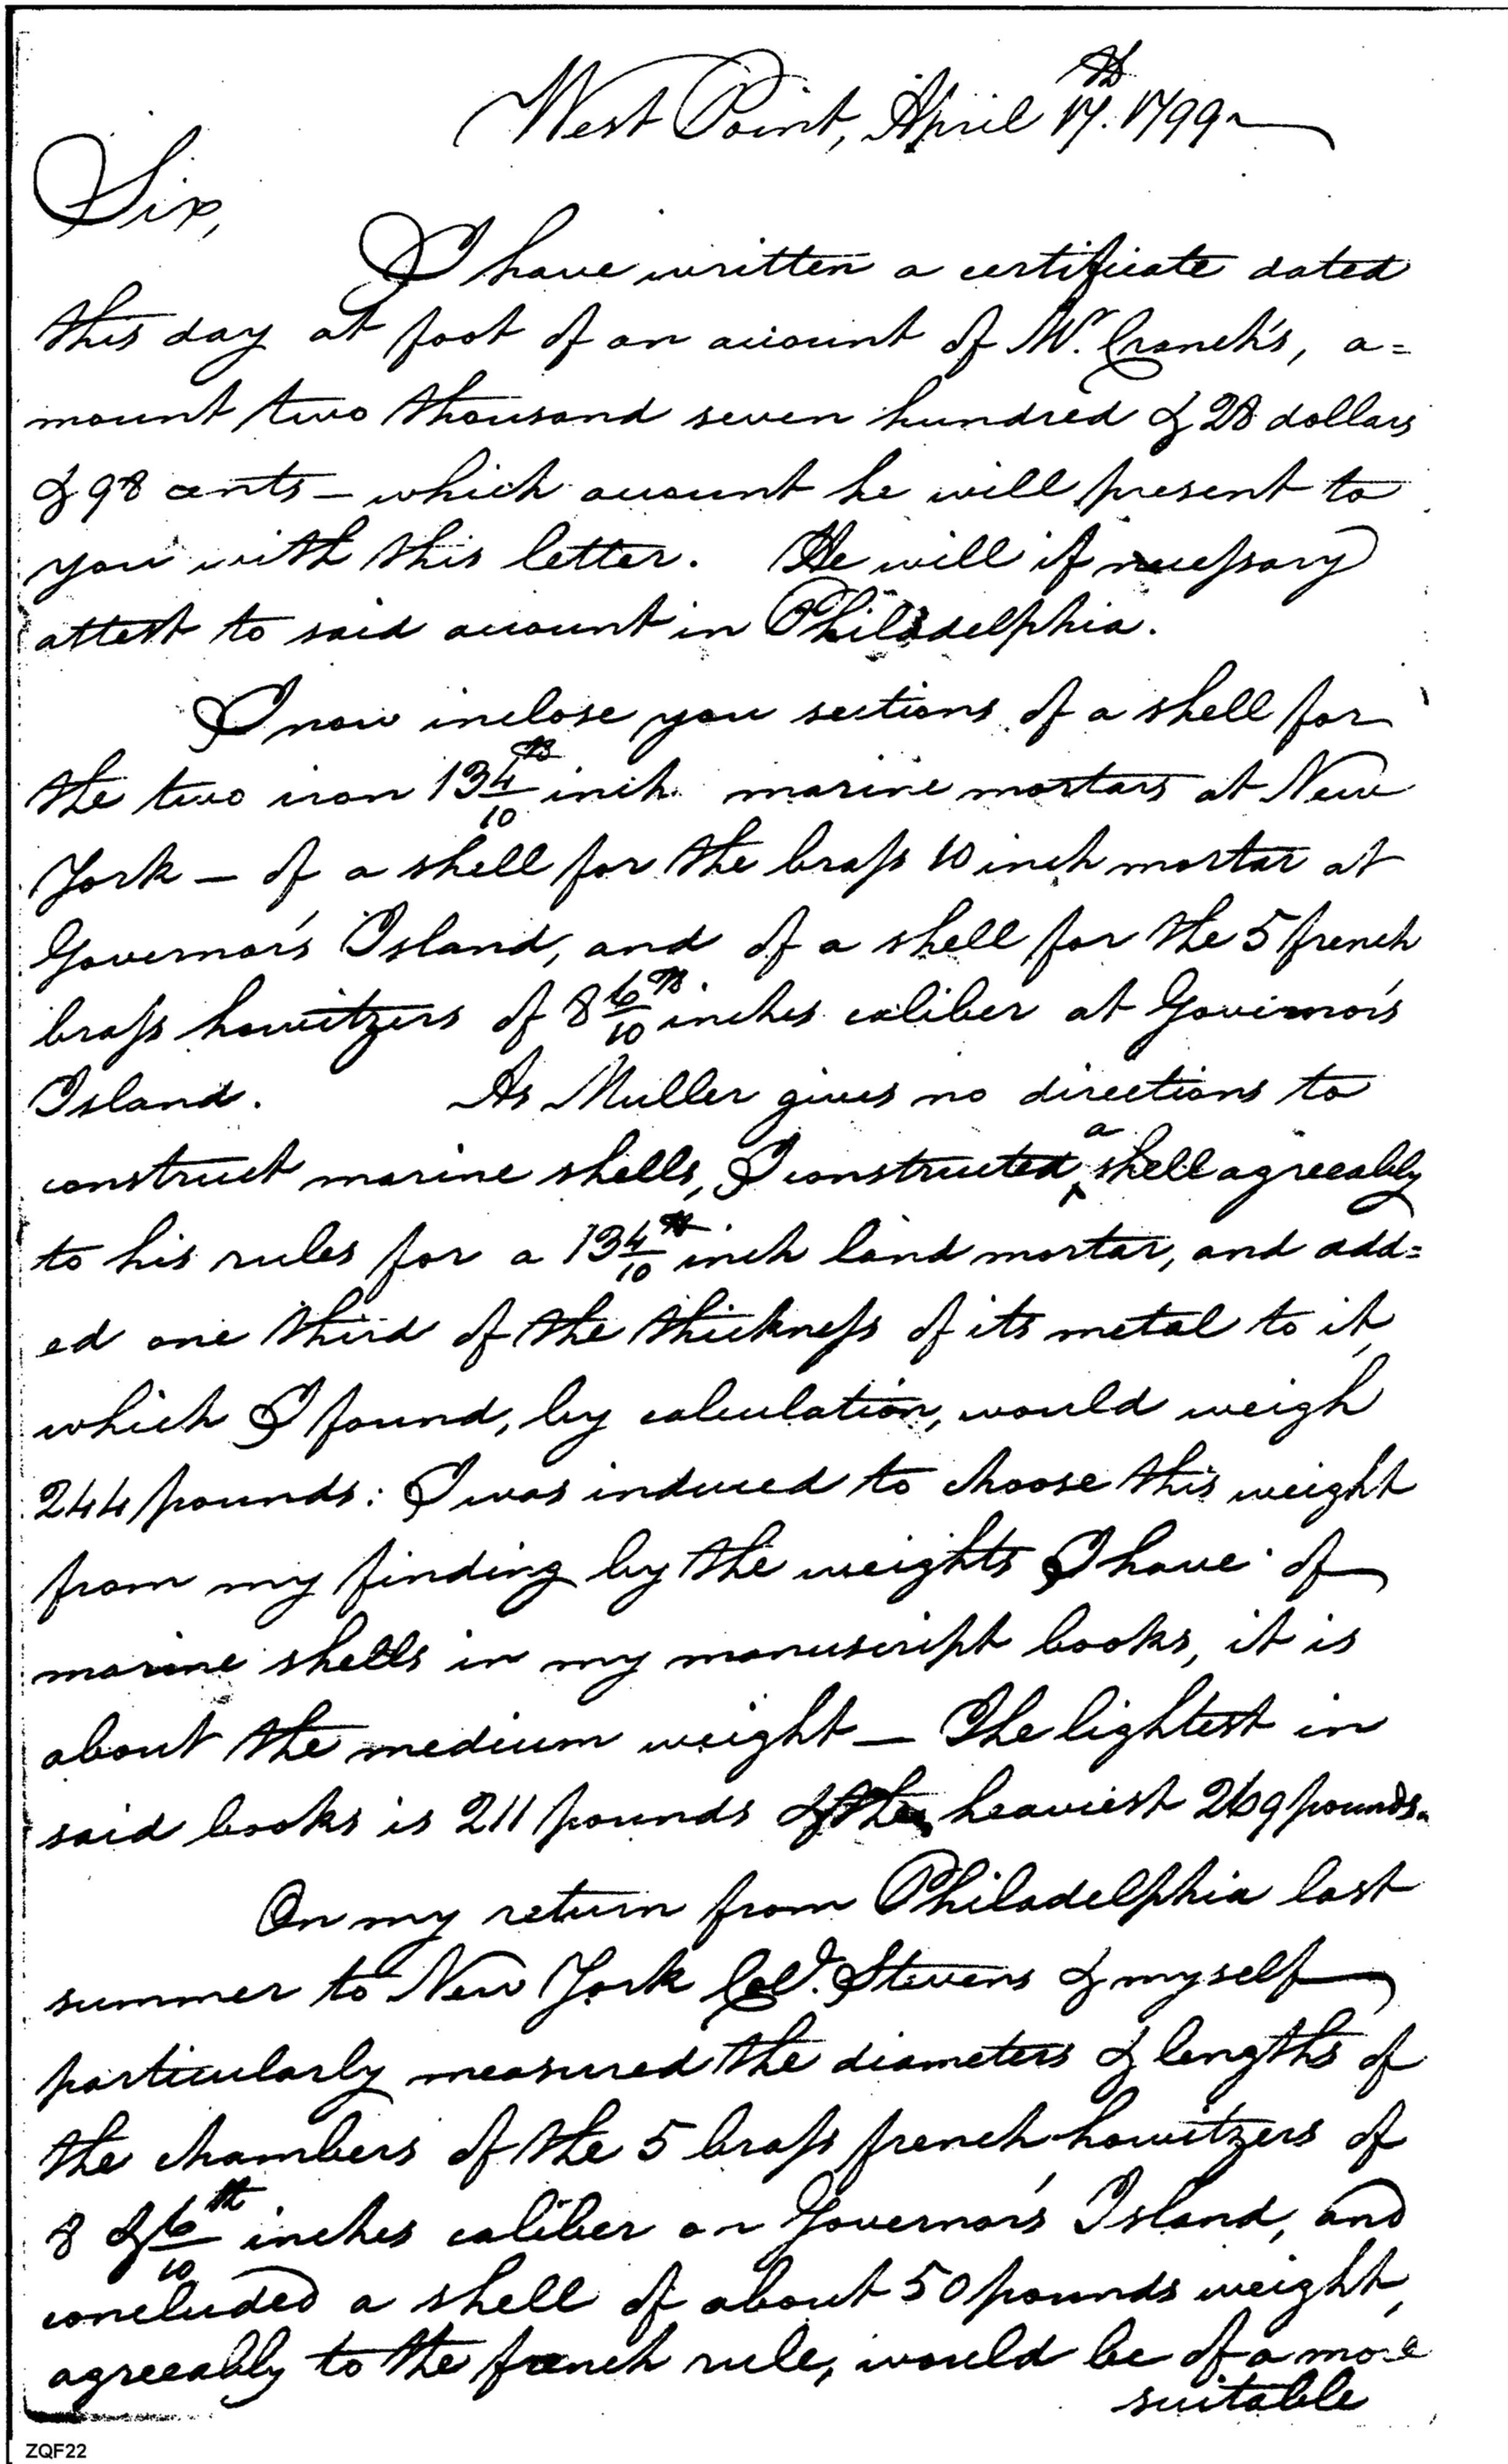 West Point, April 17th. 1799
Sir,
I have written a certificate dated
this day at foot of an account of Mr. Cranch's, a=
mount two thousand seven hundred & 28 dollars
& 98 cents — which account he will present to
you with this letter. He will if necessary
attest to said account in Philadelphia.
I now inclose you sections of a shell for
the two iron 13 4/10th inch marine mortars at New
York — of a shell for the brass 10 inch mortar at
Governor's Island, and of a shell for the 5 french
brass howitzers of 8 6/10th inches caliber at Governor's
Island. As Muller gives no directions to
construct marine shells, I constructed a shell agreeably
to his rules for a 13 4/10th inch land mortar, and add=
ed one third of the thickness of its metal to it,
which I found, by calculation, would weigh
244 pounds: I was induced to choose this weight
from my finding by the weights I have of
marine shells in my manuscript books, it is
about the medium weight — The lightest in
said books is 211 pounds & the heaviest 269 pounds.
On my return from Philadelphia last
summer to New York Col. Stevens & myself
particularly measured the diameters & lengths of
the chambers of the 5 brass french howitzers of
8 & 6/10th inches caliber on Governor's Island, and
concluded a shell of about 50 pounds weight,
agreeably to the french rule, would be of a more
suitable
ZQF22